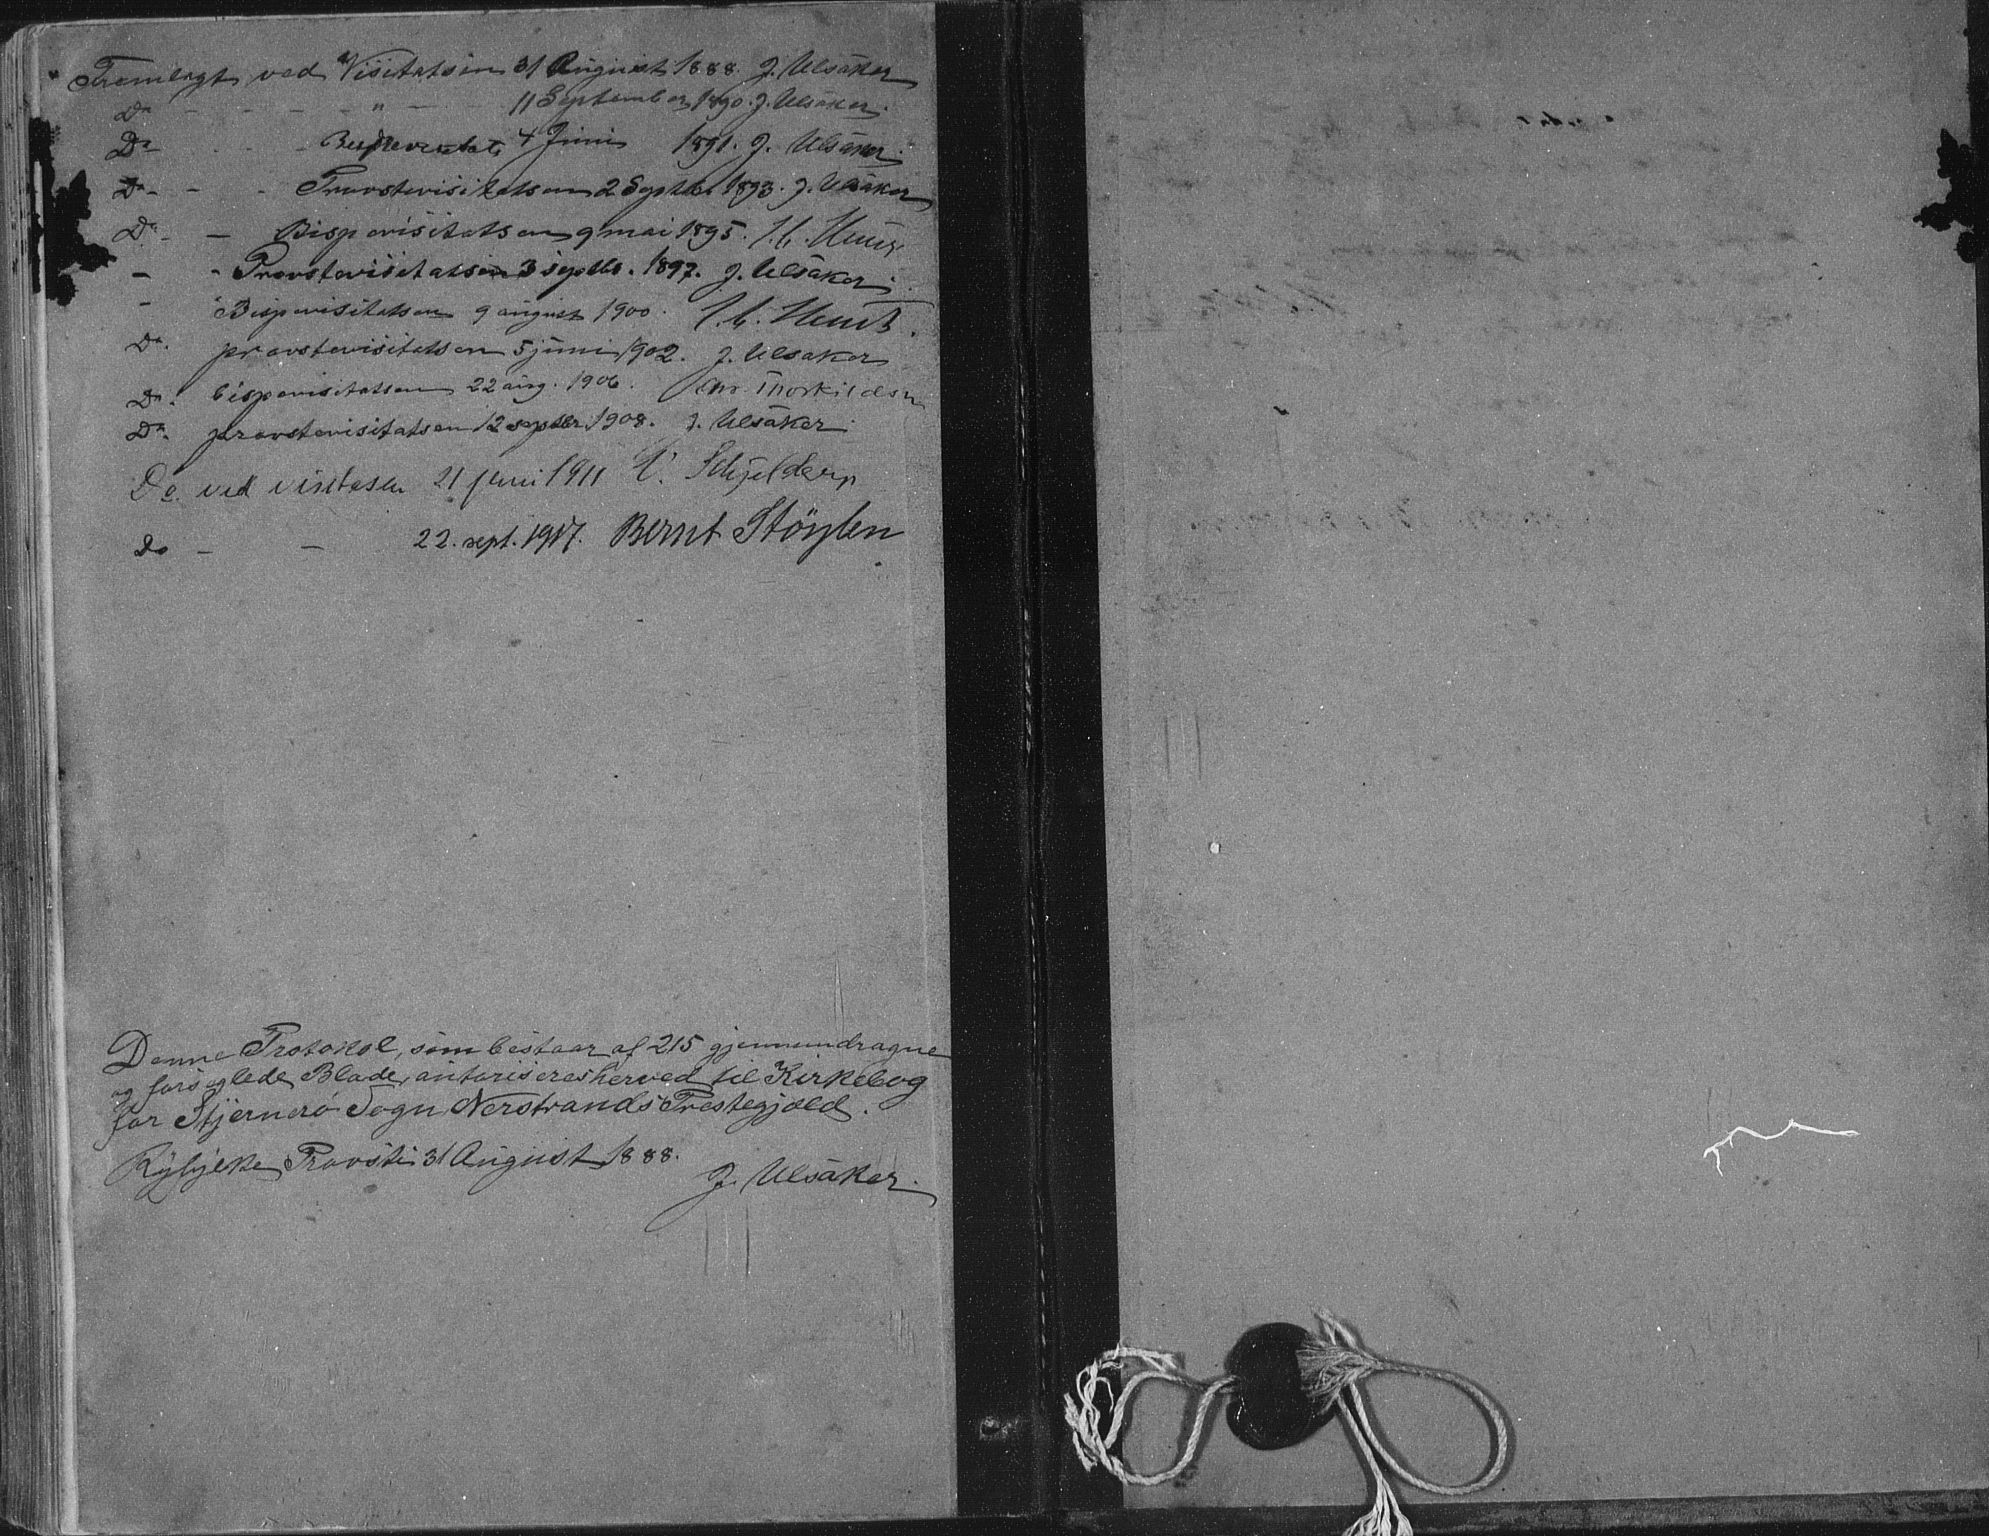 Fremlagt ved Visitatsen 31 August 1888. J. Ulsåker
Do - - - - " - 11 September 1890. J. Ulsåker.
Do - - - 4 Juni 1891. J. Ulsåker.
Do - - - Provstevisitatsen 2 Septbr 1893. J. Ulsåker
Do - - Bispevisitatsen 9 mai 1895. J. C. Heuch
- - Provstevisitatsen 3 septbr. 1897. J. Ulsåker.
- " Bispevisitatsen 9 august 1900. J. C. Heuch.
Do. provstevisitatsen 5 juni 1902. J. Ulsåker
Do. bispevisitatsen 22 aug. 1906. Chr. Thorkildsen
Do. provstevisitatsen 12 septbr 1908. J. Ulsåker
Do. ved visitasen 21 juni 1911 Schjelderup
do - - 22. sept. 1917. Bernt Støylen
Denne Protokol, som bestaar af 215 gjennemdragne
og forseglede Blade, autoriseres herved til Kirkebog
for Stjernerö Sogn, Nerstrands Prestegjæld.
Ryfylke Provsti 31 August 1888.
J. Ulsåker.